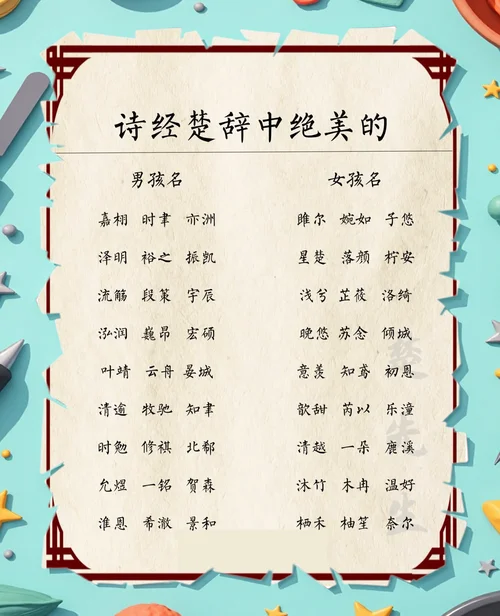 诗经楚辞中绝美的
男孩名 女孩名
嘉栩 时聿 亦洲 雎尔 婉如 子悠
泽明 裕之 振凯 星楚 落颜 柠安
流觞 段策 宇辰 浅兮 芷莜 洛绮
泓润 巍昂 宏硕 晚悠 苏念 倾城
叶靖 云舟 晏城 意羡 知鸢 初恩
清逾 牧驰 知聿 歆甜 芮以 乐潼
时勉 修祺 北郗 清越 一朵 鹿溪
允煜 一铭 賀森 沐竹 木冉 温好
淮恩 希澈 景和 栖禾 柚笙 奈尔